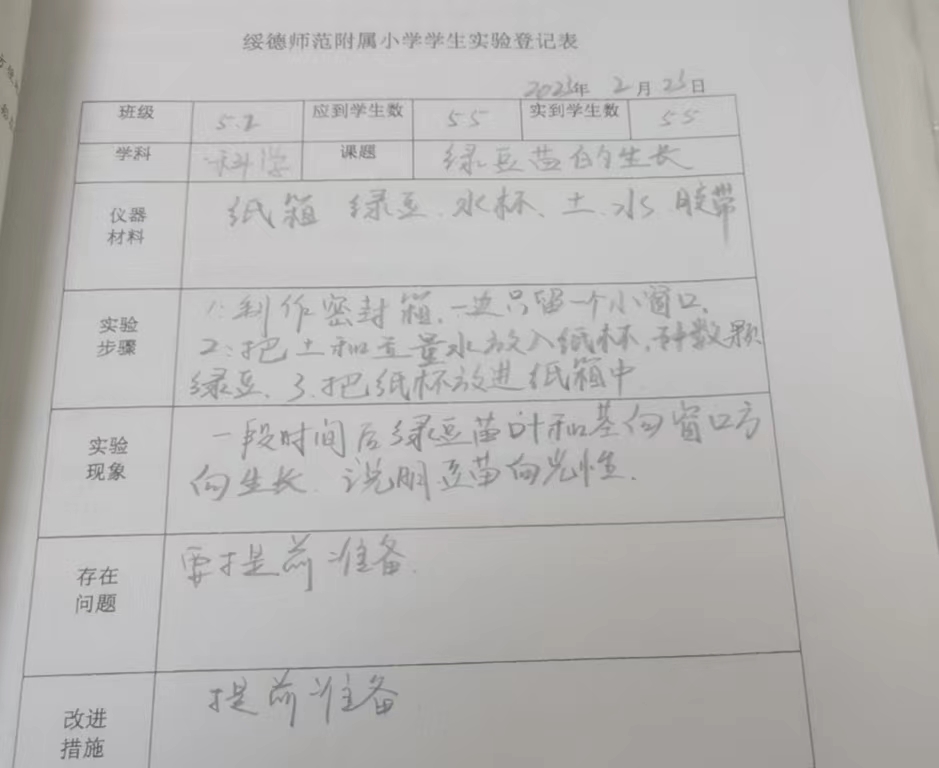 绥德师范附属小学学生实验登记表
2023年 2月 23日
班级 5.2 应到学生数 55 实到学生数 55
学科 科学 课题 绿豆苗的生长
仪器材料 纸箱 绿豆、水杯、土、水、胶带
实验步骤 1.制作密封箱,一边只留一个小窗口,
2.把土和适量水放入纸杯,种数颗
绿豆、3.把纸杯放进纸箱中
实验现象 一段时间后绿豆苗叶和茎向窗口方
向生长、说明豆苗向光性.
存在问题 要提前准备.
改进措施 提前准备